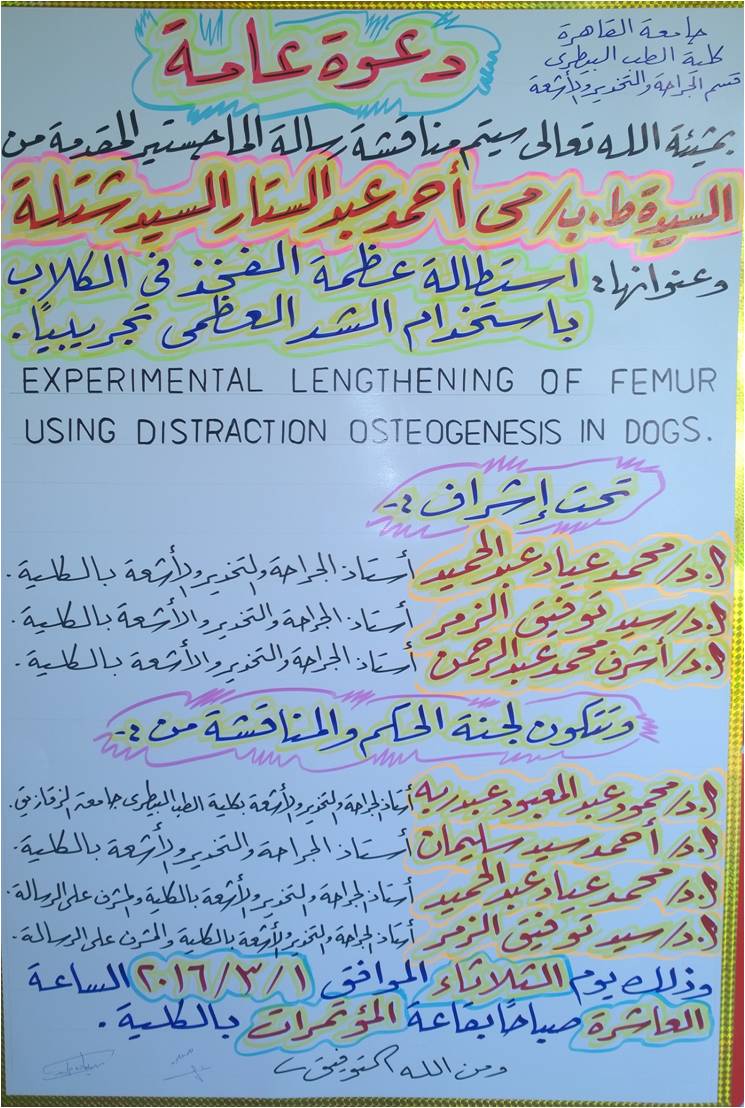 جامعة القاهرة
كلية الطب البيطرى
قسم الجراحة والتخدير والأشعة
دعوة عامة
بمشيئة الله تعالى سيتم مناقشة رسالة الماجستير المقدمة من
السيدة ط.ب/ مى أحمد عبد الستار السيد شتلة
وعنوانها: استطالة عظمة الفخذ فى الكلاب
باستخدام الشد العظمى تجريبياً.
EXPERIMENTAL LENGTHENING OF FEMUR
USING DISTRACTION OSTEOGENESIS IN DOGS.
تحت إشراف :-
أ.د/ محمد عياد عبد الحميد أستاذ الجراحة والتخدير والأشعة بالكلية.
أ.د/ سيد توفيق الزمر أستاذ الجراحة والتخدير والأشعة بالكلية.
أ.د/ أشرف محمد عبد الرحمن أستاذ الجراحة والتخدير والأشعة بالكلية.
وتتكون لجنة الحكم والمناقشة من :-
أ.د/ محمود عبد المعبود عبد ربه أستاذ الجراحة والتخدير والأشعة بكلية الطب البيطرى جامعة الزقازيق.
أ.د/ أحمد سيد سليمان أستاذ الجراحة والتخدير والأشعة بالكلية.
أ.د/ محمد عياد عبد الحميد أستاذ الجراحة والتخدير والأشعة بالكلية والمشرف على الرسالة.
أ.د/ سيد توفيق الزمر أستاذ الجراحة والتخدير والأشعة بالكلية والمشرف على الرسالة.
وذلك يوم الثلاثاء الموافق ٢٠١٦/٣/١ الساعة
العاشرة صباحاً بقاعة المؤتمرات بالكلية.
ومن الله التوفيق